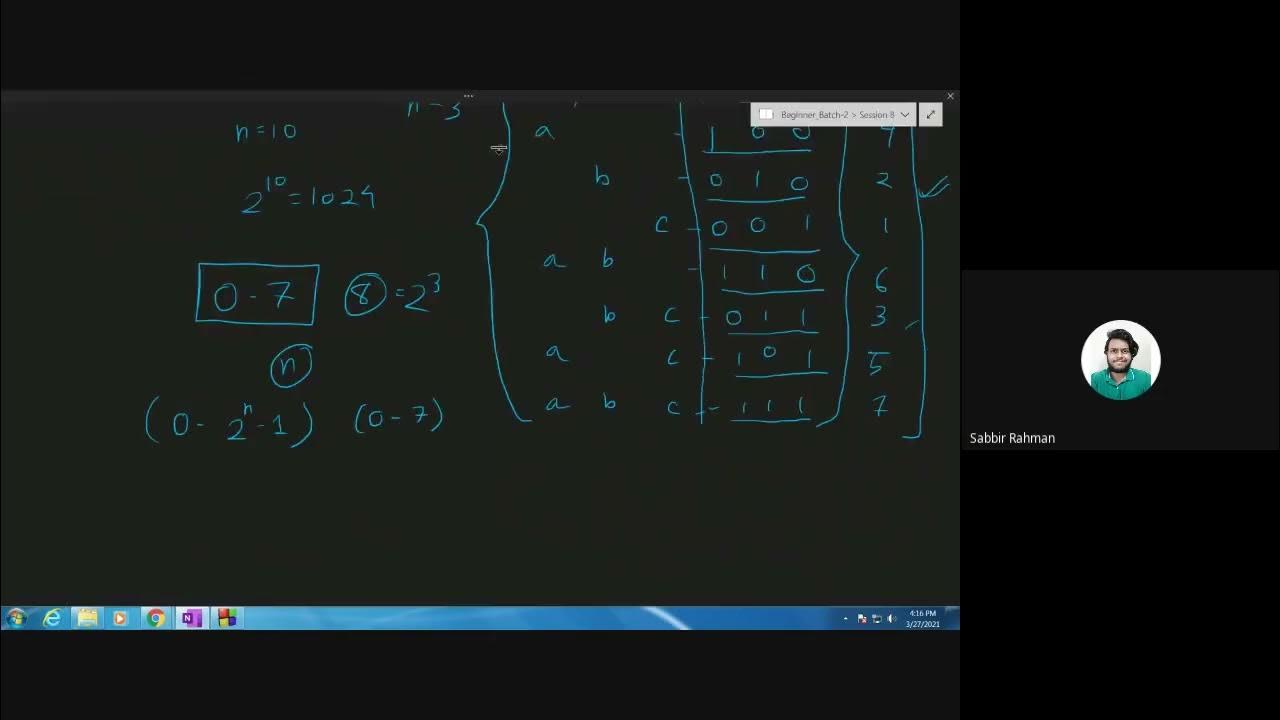 n = 3
Beginner_Batch-2 > Session 8
n = 10
a - 1 0 0 4
b - 0 1 0 2
2^10 = 1024
c - 0 0 1 1
a b - 1 1 0 6
0 - 7 8 = 2^3
b c - 0 1 1 3
n
a c - 1 0 1 5
(0 - 2^n - 1) (0 - 7)
a b c - 1 1 1 7
Sabbir Rahman
4:16 PM
3/27/2021